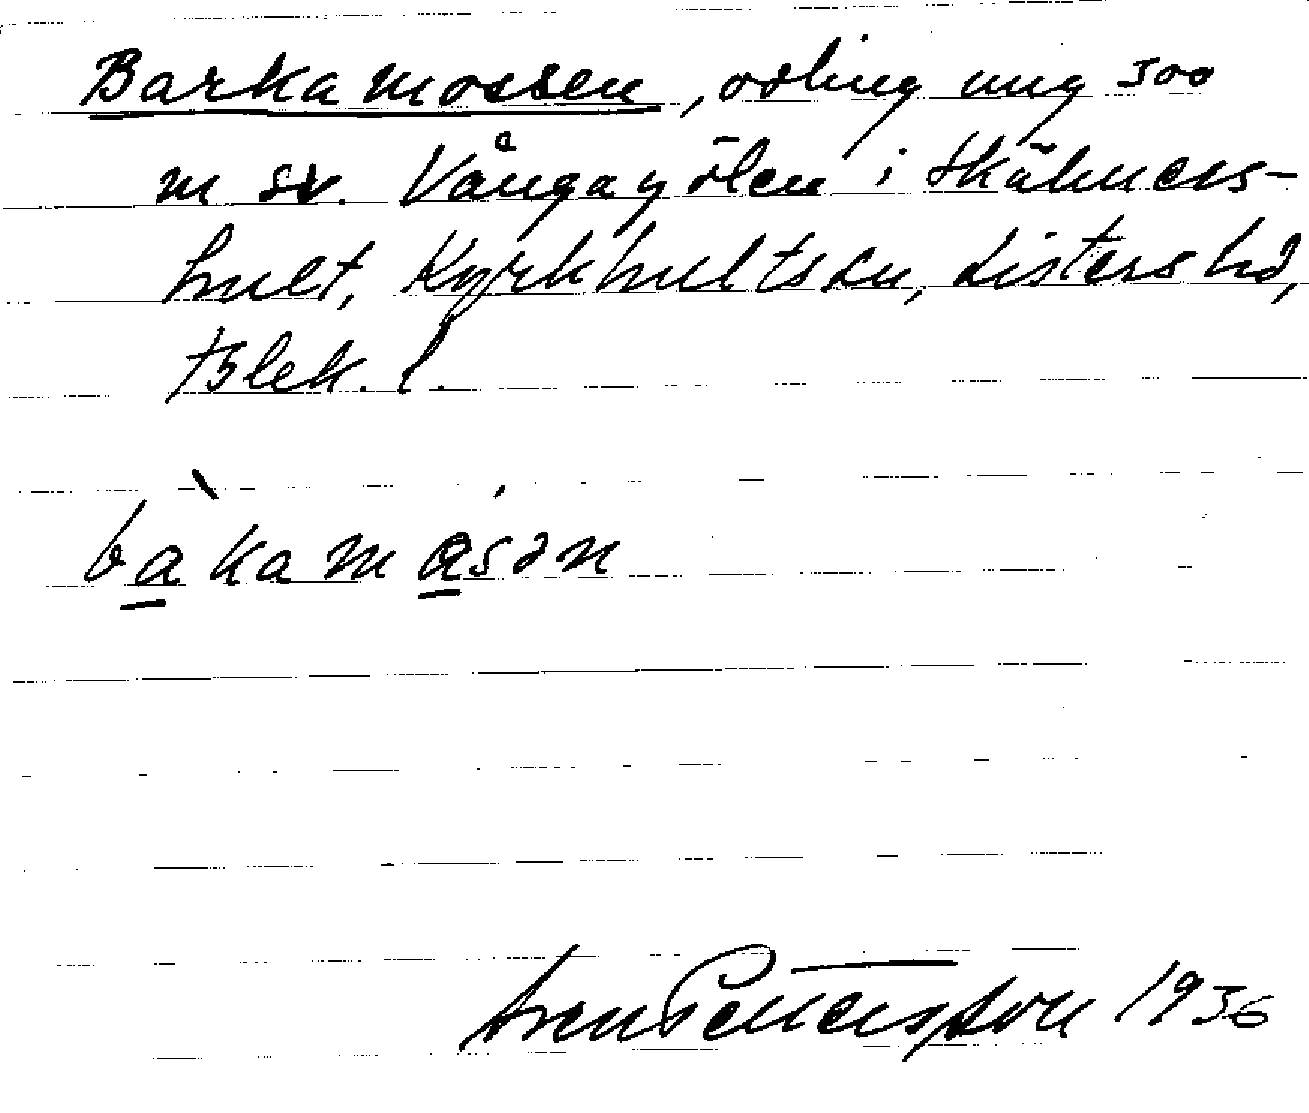 Barkamossen, odling ung 300
m sv. Vångagölen i Skälmers-
hult, Kyrkhults sn, Listers hd,
Blek. l.
bàkamásən
Sven Pettersson 1936